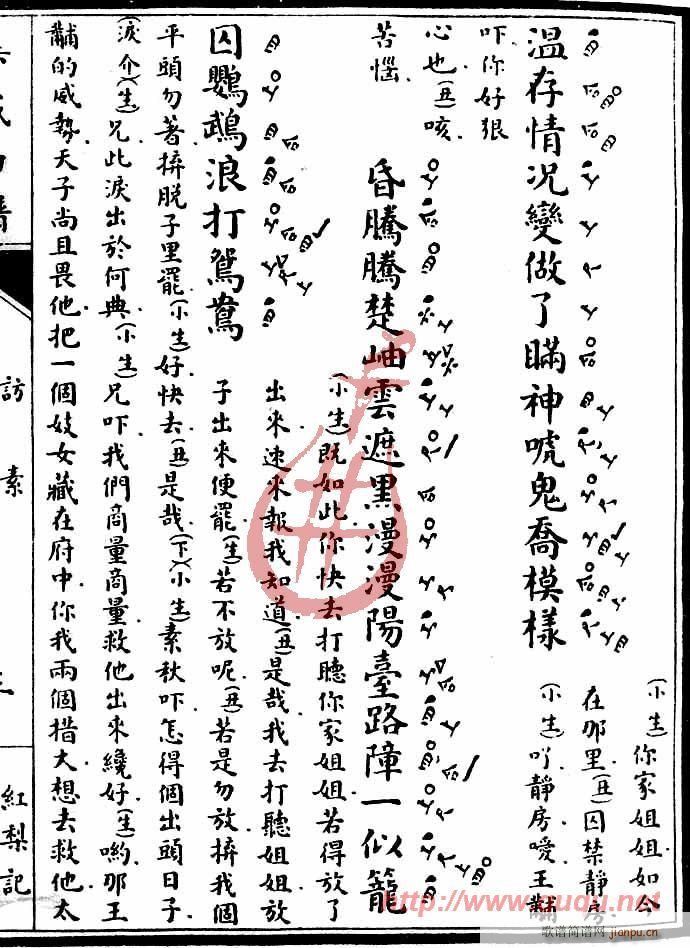 (小生)你家姐姐如今
在那里(丑)囚禁靜房
溫存情况變做了瞞神唬鬼喬模樣(小生)吖靜房噯王黼
吓你好狠
心也(丑)咳
苦惱
昏騰騰楚岫雲遮黑漫漫陽臺路障一似籠
(小生)既如此你快去打聽你家姐姐若得放了
出來速來報我知道(丑)是哉我去打聽姐姐放
囚鸚鵡浪打鴛鴦
子出來便罷(生)若不放呢(丑)若是勿放拚我個
平頭勿著拚脱子里罷(小生)好快去(丑)是哉(下)(小生)素秋吓怎得個出頭日子
(淚介)(生)兄此淚出於何典(小生)兄吓我們商量商量救他出來纔好(生)喲那王
黼的威勢天子尚且畏他把一個妓女藏在府中你我兩個措大想去救他太
訪素
紅梨記
http://www.ququ.net
歌谱简谱网
jianpu.cn